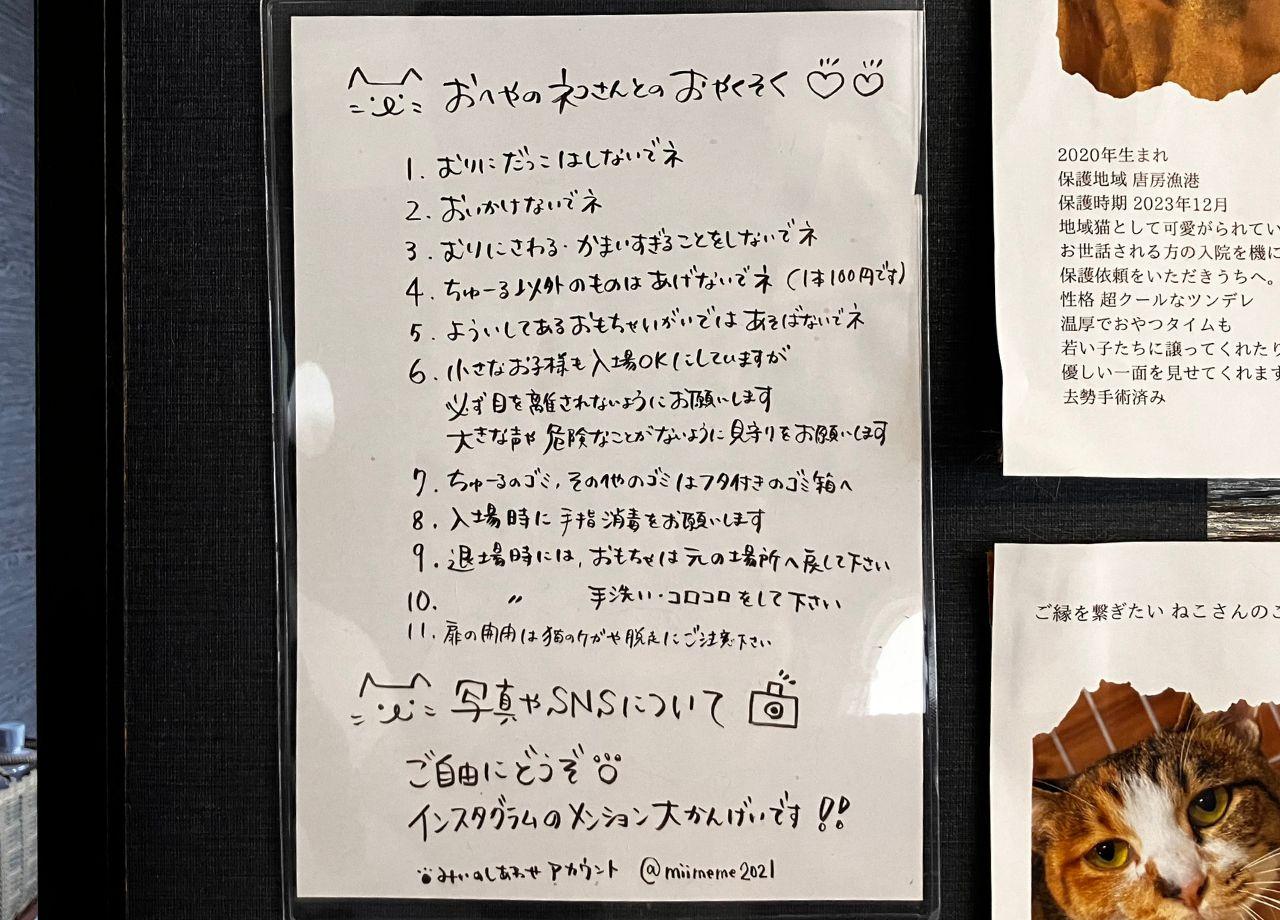 おへやのネコさんとのおやくそく
1. むりにだっこはしないでネ
2. おいかけないでネ
3. むりにさわる・かまいすぎることをしないでネ
4. ちゅーる以外のものはあげないでネ (1本100円です)
5. よういしてあるおもちゃいがいではあそばないでネ
6. 小さなお子様も入場OKにしていますが
必ず目を離されないようにお願いします
大きな声や危険なことがないように見守りをお願いします
7. ちゅーるのゴミ,その他のゴミはフタ付きのゴミ箱へ
8. 入場時に手指消毒をお願いします
9. 退場時には,おもちゃは元の場所へ戻して下さい
10. 〃 手洗い・コロコロをして下さい
11. 扉の開閉は猫のケガや脱走にご注意下さい
写真やSNSについて
ご自由にどうぞ
インスタグラムのメンション大かんげいです!!
みぃのしあわせアカウント @miimeme2021
2020年生まれ
保護地域 唐房漁港
保護時期 2023年12月
地域猫として可愛がられてい
お世話される方の入院を機に
保護依頼をいただきうちへ。
性格 超クールなツンデレ
温厚でおやつタイムも
若い子たちに譲ってくれたり
優しい一面を見せてくれます
去勢手術済み
ご縁を繋ぎたい ねこさんのご